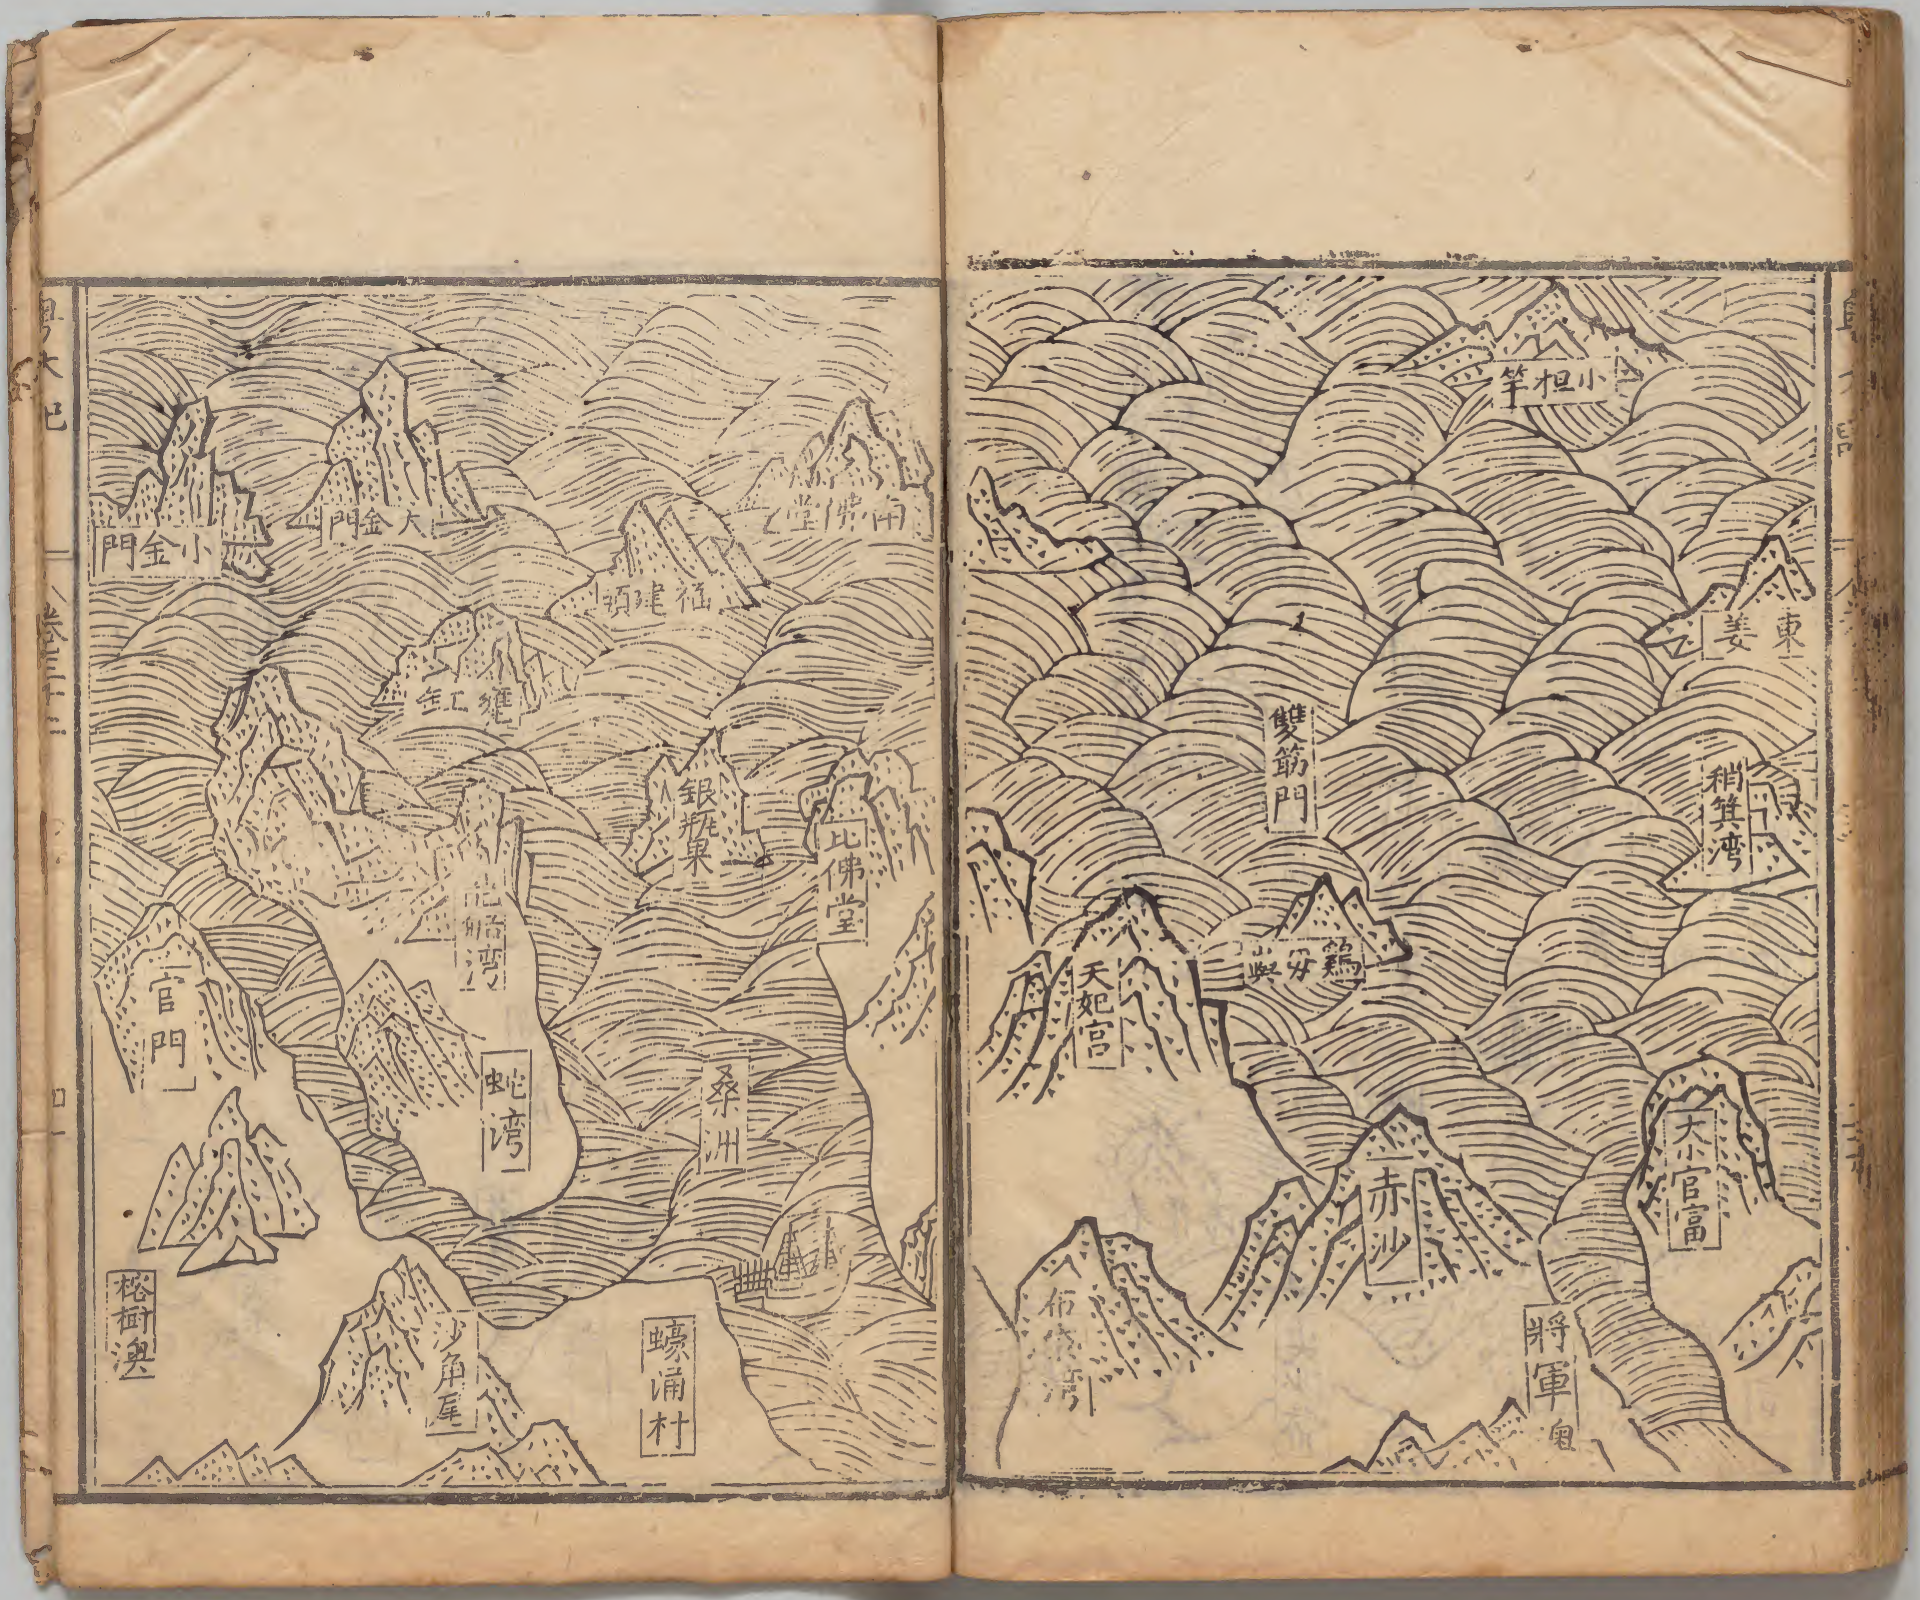 小担竿
東姜
稍箕湾
雙筯門
鷄毋嶼
天妃宮
大小官富
赤沙
將軍澳
布袋湾
粤大記
卷三十二
南佛堂
福建頭
大金門
小金門
瓮缸
銀瓶
比佛堂
蛇湾
官門
桑洲
榕樹澳
沙角尾
蠔涌村